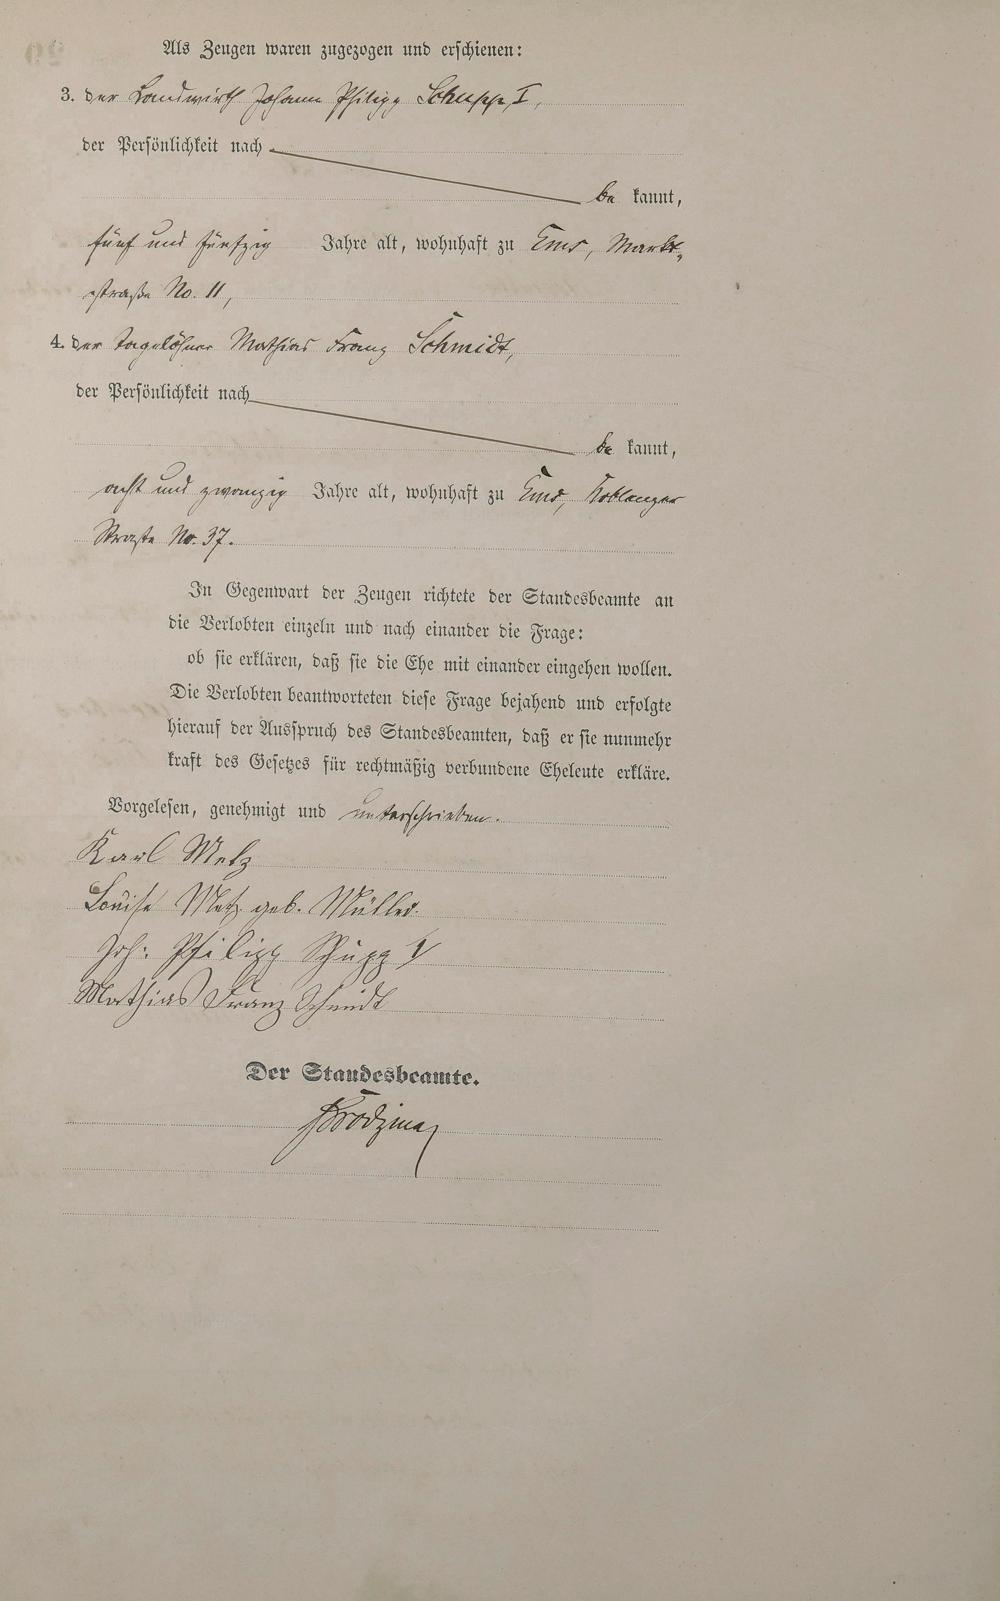 Als Zeugen waren zugezogen und erschienen:
3. der Landwirth Johann Philipp Schupp I,
der Persönlichkeit nach
be kannt,
fünf und fünfzig Jahre alt, wohnhaft zu Ems, Markt-
straße No. 11,
4. der Tagelöhner Mathias Franz Schmidt,
der Persönlichkeit nach
be kannt,
acht und zwanzig Jahre alt, wohnhaft zu Ems, Koblenzer
Straße No. 37.
In Gegenwart der Zeugen richtete der Standesbeamte an
die Verlobten einzeln und nach einander die Frage:
ob sie erklären, daß sie die Ehe mit einander eingehen wollen.
Die Verlobten beantworteten diese Frage bejahend und erfolgte
hierauf der Ausspruch des Standesbeamten, daß er sie nunmehr
kraft des Gesetzes für rechtmäßig verbundene Eheleute erkläre.
Vorgelesen, genehmigt und unterschrieben.
Karl Metz
Louise Metz geb. Müller.
Joh: Philipp Schupp I
Mathias Franz Schmidt
Der Standesbeamte.